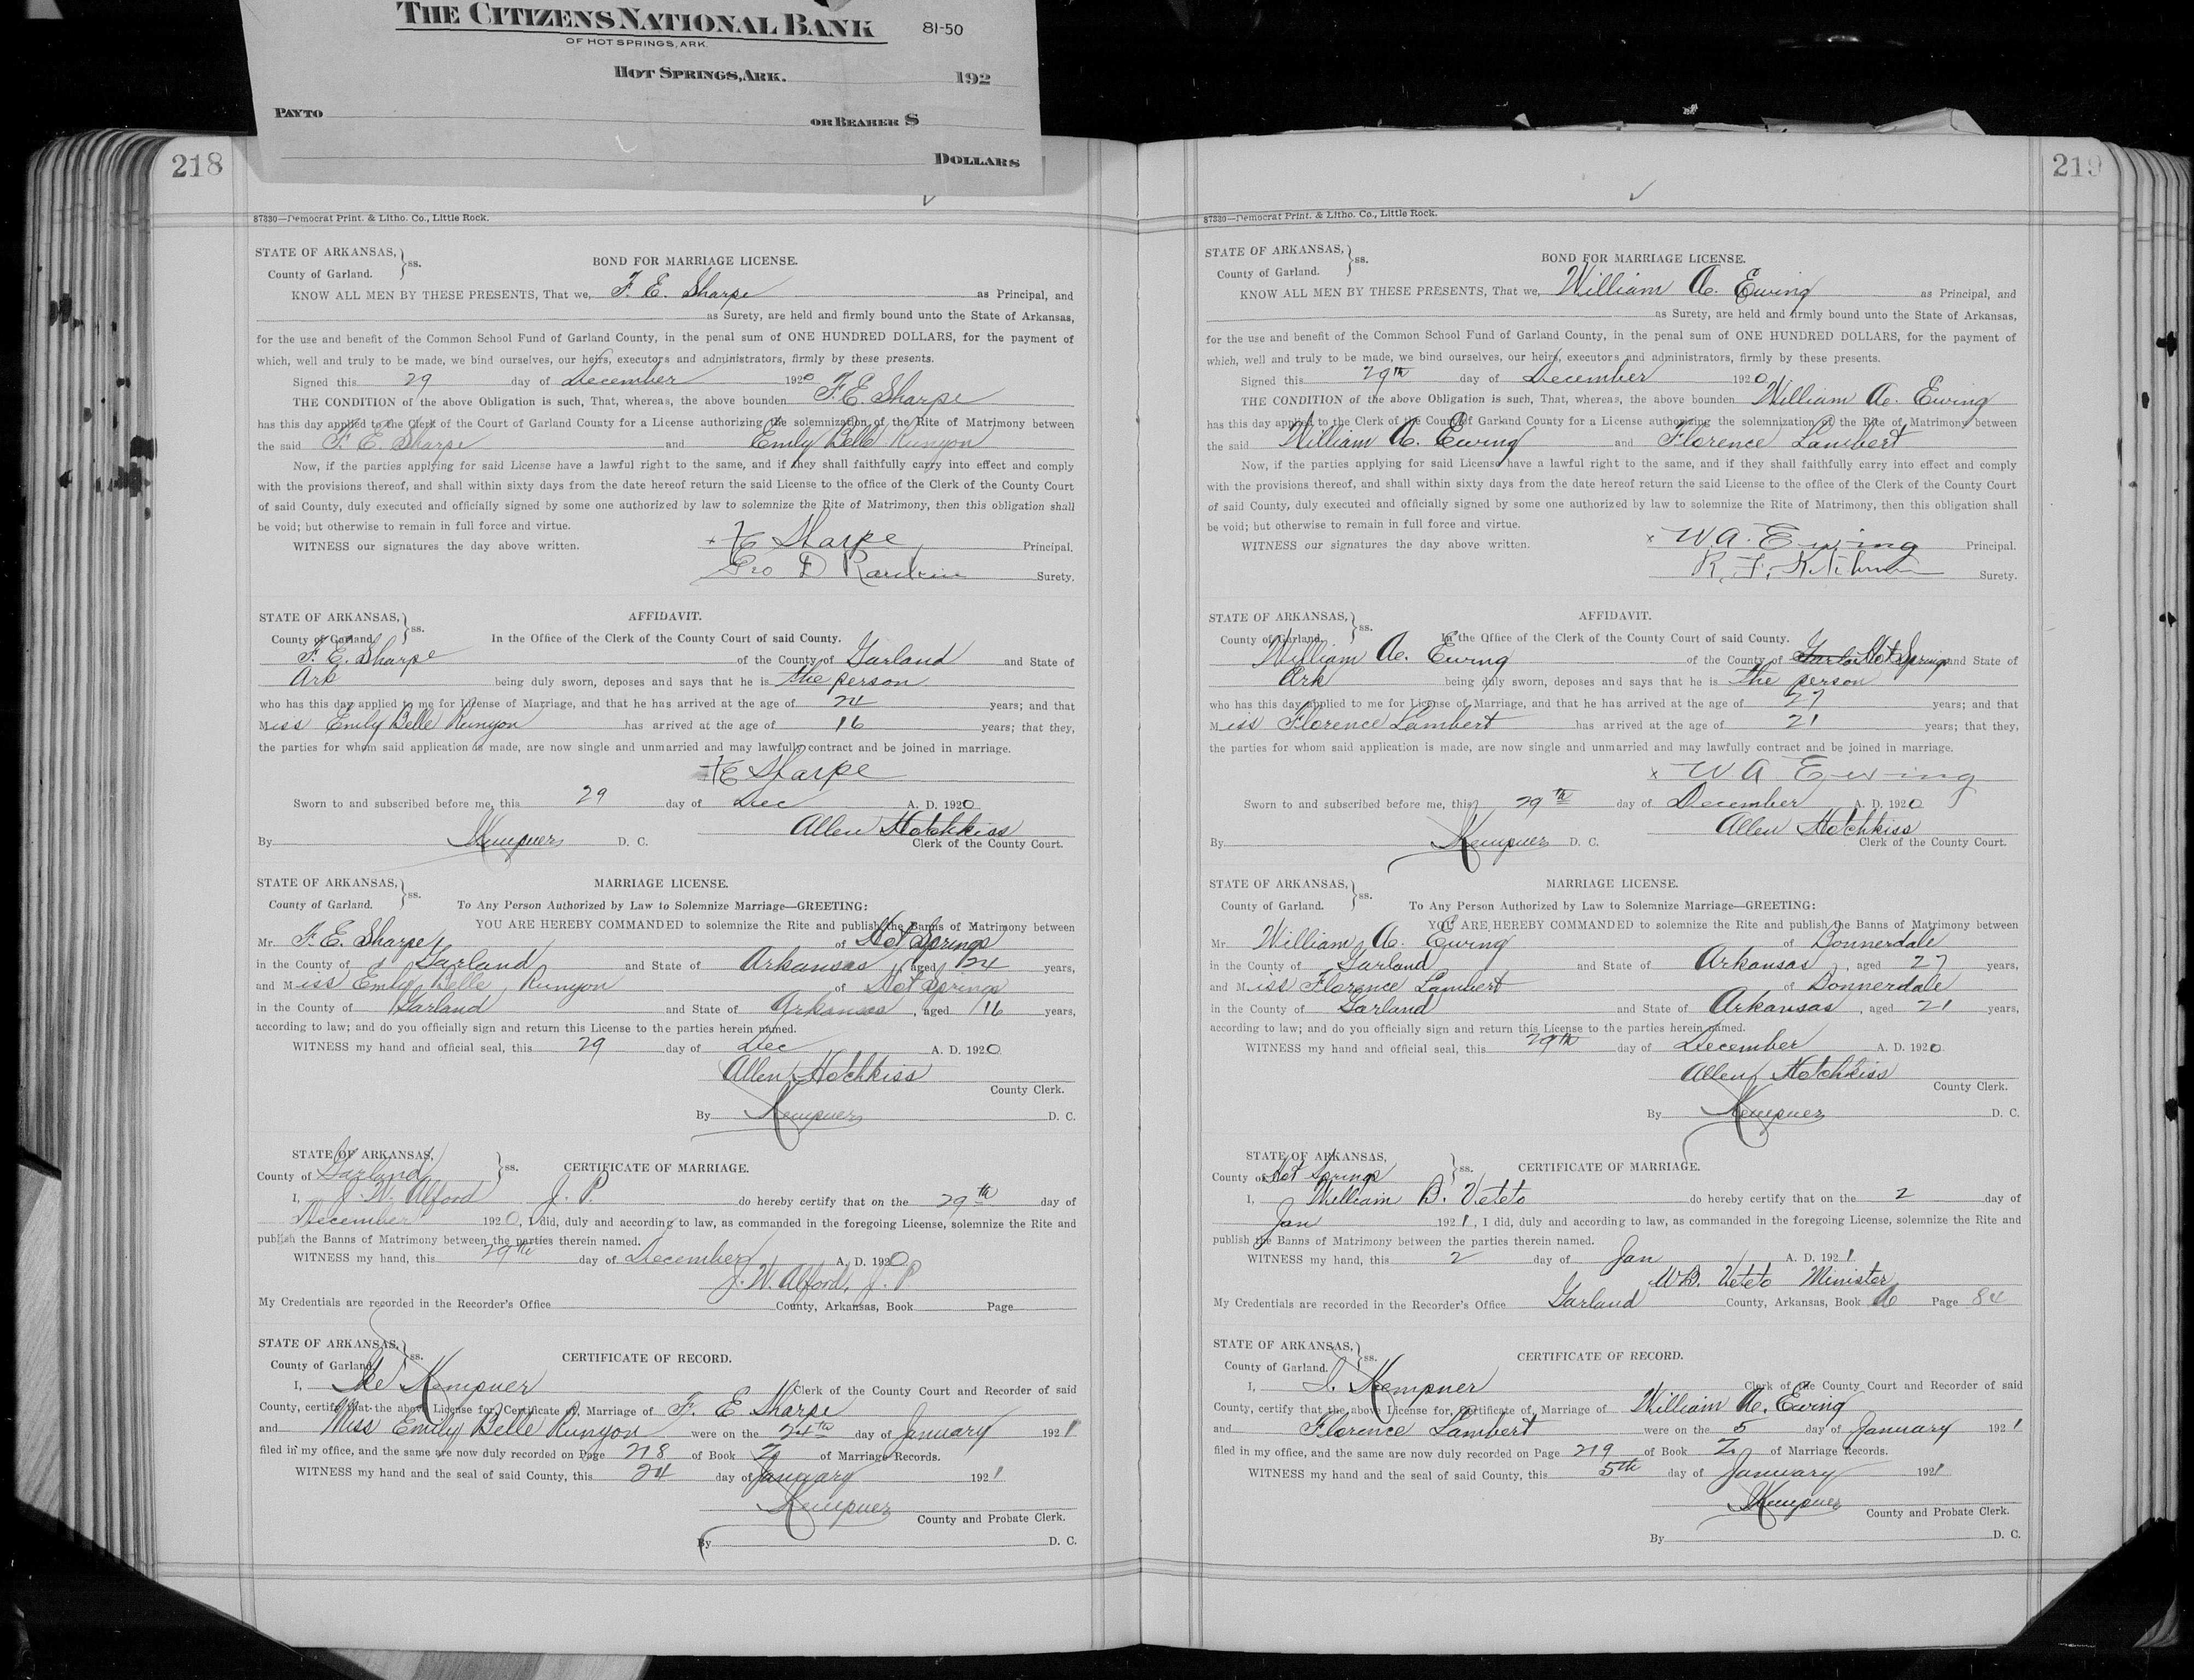 THE CITIZENS NATIONAL BANK 81-50
OF HOT SPRINGS, ARK.
HOT SPRINGS, ARK. 192
PAY TO OR BEARER $
DOLLARS
218
87330—Democrat Print. & Litho. Co., Little Rock.
STATE OF ARKANSAS, } ss. BOND FOR MARRIAGE LICENSE.
County of Garland.
KNOW ALL MEN BY THESE PRESENTS, That we, F. E. Sharpe as Principal, and
as Surety, are held and firmly bound unto the State of Arkansas,
for the use and benefit of the Common School Fund of Garland County, in the penal sum of ONE HUNDRED DOLLARS, for the payment of
which, well and truly to be made, we bind ourselves, our heirs, executors and administrators, firmly by these presents.
Signed this 29 day of December 1920
THE CONDITION of the above Obligation is such, That, whereas, the above bounden F. E. Sharpe
has this day applied to the Clerk of the Court of Garland County for a License authorizing the solemnization of the Rite of Matrimony between
the said F. E. Sharpe and Emily Belle Runyon
Now, if the parties applying for said License have a lawful right to the same, and if they shall faithfully carry into effect and comply
with the provisions thereof, and shall within sixty days from the date hereof return the said License to the office of the Clerk of the County Court
of said County, duly executed and officially signed by some one authorized by law to solemnize the Rite of Matrimony, then this obligation shall
be void; but otherwise to remain in full force and virtue.
WITNESS our signatures the day above written. x F E Sharpe Principal.
Geo D Surety.
STATE OF ARKANSAS, } ss. AFFIDAVIT.
County of Garland. In the Office of the Clerk of the County Court of said County.
F. E. Sharpe of the County of Garland and State of
Ark being duly sworn, deposes and says that he is the person
who has this day applied to me for License of Marriage, and that he has arrived at the age of 24 years; and that
Miss Emily Belle Runyon has arrived at the age of 16 years; that they,
the parties for whom said application is made, are now single and unmarried and may lawfully contract and be joined in marriage.
F E Sharpe
Sworn to and subscribed before me, this 29 day of Dec A. D. 1920
Allen Hotchkiss
By Kempner D. C. Clerk of the County Court.
STATE OF ARKANSAS, } ss. MARRIAGE LICENSE.
County of Garland. To Any Person Authorized by Law to Solemnize Marriage—GREETING:
YOU ARE HEREBY COMMANDED to solemnize the Rite and publish the Banns of Matrimony between
Mr. F. E. Sharpe of Hot Springs
in the County of Garland and State of Arkansas, aged 24 years,
and Miss Emily Belle Runyon of Hot Springs
in the County of Garland and State of Arkansas, aged 16 years,
according to law; and do you officially sign and return this License to the parties herein named.
WITNESS my hand and official seal, this 29 day of Dec A. D. 1920
Allen Hotchkiss
County Clerk.
By Kempner D. C.
STATE OF ARKANSAS, } ss. CERTIFICATE OF MARRIAGE.
County of Garland
I, J. W. Alford J. P. do hereby certify that on the 29th day of
December 1920, I did, duly and according to law, as commanded in the foregoing License, solemnize the Rite and
publish the Banns of Matrimony between the parties therein named.
WITNESS my hand, this 29th day of December A. D. 1920
J. W. Alford, J. P
My Credentials are recorded in the Recorder's Office County, Arkansas, Book Page
STATE OF ARKANSAS, } ss. CERTIFICATE OF RECORD.
County of Garland.
I, Ike Kempner Clerk of the County Court and Recorder of said
County, certify that the above License for, Certificate of, Marriage of F. E Sharpe
and Miss Emily Belle Runyon were on the 24th day of January 1921
filed in my office, and the same are now duly recorded on Page 218 of Book Z of Marriage Records.
WITNESS my hand and the seal of said County, this 24 day of January 1921
Kempner
County and Probate Clerk.
By D. C.
219
87330—Democrat Print. & Litho. Co., Little Rock.
STATE OF ARKANSAS, } ss. BOND FOR MARRIAGE LICENSE.
County of Garland.
KNOW ALL MEN BY THESE PRESENTS, That we, William A. Ewing as Principal, and
as Surety, are held and firmly bound unto the State of Arkansas,
for the use and benefit of the Common School Fund of Garland County, in the penal sum of ONE HUNDRED DOLLARS, for the payment of
which, well and truly to be made, we bind ourselves, our heirs, executors and administrators, firmly by these presents.
Signed this 29th day of December 1920
THE CONDITION of the above Obligation is such, That, whereas, the above bounden William A. Ewing
has this day applied to the Clerk of the Court of Garland County for a License authorizing the solemnization of the Rite of Matrimony between
the said William A. Ewing and Florence Lambert
Now, if the parties applying for said License have a lawful right to the same, and if they shall faithfully carry into effect and comply
with the provisions thereof, and shall within sixty days from the date hereof return the said License to the office of the Clerk of the County Court
of said County, duly executed and officially signed by some one authorized by law to solemnize the Rite of Matrimony, then this obligation shall
be void; but otherwise to remain in full force and virtue.
WITNESS our signatures the day above written. x W. A. Ewing Principal.
R. F. Surety.
STATE OF ARKANSAS, } ss. AFFIDAVIT.
County of Garland. In the Office of the Clerk of the County Court of said County.
William A. Ewing of the County of Hot Springs and State of
Ark being duly sworn, deposes and says that he is the person
who has this day applied to me for License of Marriage, and that he has arrived at the age of 27 years; and that
Miss Florence Lambert has arrived at the age of 21 years; that they,
the parties for whom said application is made, are now single and unmarried and may lawfully contract and be joined in marriage.
x W A Ewing
Sworn to and subscribed before me, this 29th day of December A. D. 1920
Allen Hotchkiss
By Kempner D. C. Clerk of the County Court.
STATE OF ARKANSAS, } ss. MARRIAGE LICENSE.
County of Garland. To Any Person Authorized by Law to Solemnize Marriage—GREETING:
YOU ARE HEREBY COMMANDED to solemnize the Rite and publish the Banns of Matrimony between
Mr William A. Ewing of Bonnerdale
in the County of Garland and State of Arkansas, aged 27 years,
and Miss Florence Lambert of Bonnerdale
in the County of Garland and State of Arkansas, aged 21 years,
according to law; and do you officially sign and return this License to the parties herein named.
WITNESS my hand and official seal, this 29th day of December A. D. 1920
Allen Hotchkiss
County Clerk.
By Kempner D. C.
STATE OF ARKANSAS, } ss. CERTIFICATE OF MARRIAGE.
County of Hot Springs
I, William B. Veteto do hereby certify that on the 2 day of
Jan 1921, I did, duly and according to law, as commanded in the foregoing License, solemnize the Rite and
publish the Banns of Matrimony between the parties therein named.
WITNESS my hand, this 2 day of Jan A. D. 1921
W.B. Veteto Minister
My Credentials are recorded in the Recorder's Office Garland County, Arkansas, Book A Page 84
STATE OF ARKANSAS, } ss. CERTIFICATE OF RECORD.
County of Garland.
I, I. Kempner Clerk of the County Court and Recorder of said
County, certify that the above License for, Certificate of, Marriage of William A. Ewing
and Florence Lambert were on the 5 day of January 1921
filed in my office, and the same are now duly recorded on Page 219 of Book Z of Marriage Records.
WITNESS my hand and the seal of said County, this 5th day of January 1921
Kempner
County and Probate Clerk.
By D. C.